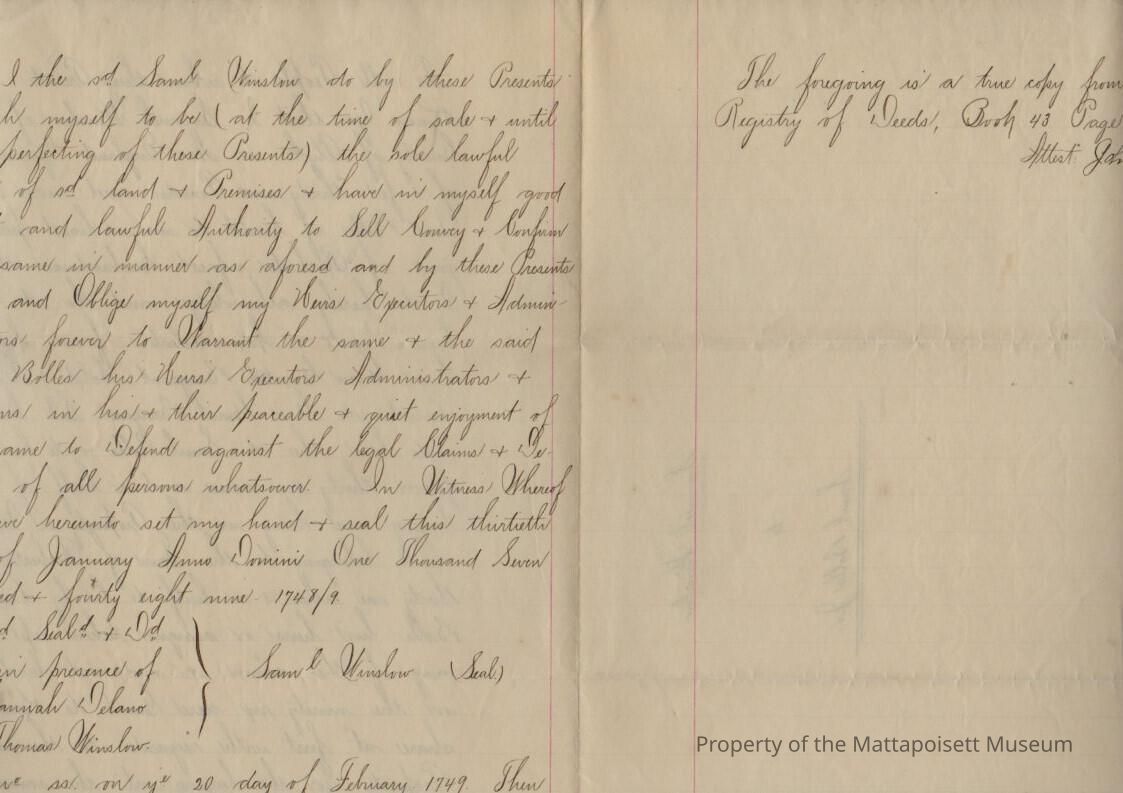 I the sd Saml Winslow do by these Presents
h myself to be (at the time of sale + until
perfecting of these Presents) the sole lawful
of sd land + Premises + have in myself good
and lawful Authority to Sell Convey + Confirm
same in manner as aforesd and by these Presents
and Oblige myself my Heirs Executors + Admin-
ors forever to Warrant the same + the said
Bolles his Heirs Executors Administrators +
ns in his + their peaceable + quiet enjoyment of
ame to Defend against the legal Claims + De-
of all persons whatsoever. In Witness Whereof
ve hereunto set my hand + seal this thirtieth
of January Anno Domini One Thousand Seven
ed + fourty eight nine 1748/9
d Seald + Dd
in presence of Saml Winslow (Seal)
annah Delano
Thomas Winslow.
ss. on ye 20 day of February 1749. Then
The foregoing is a true copy from
Registry of Deeds, Book 43 Page
Attest: Joh
Property of the Mattapoisett Museum